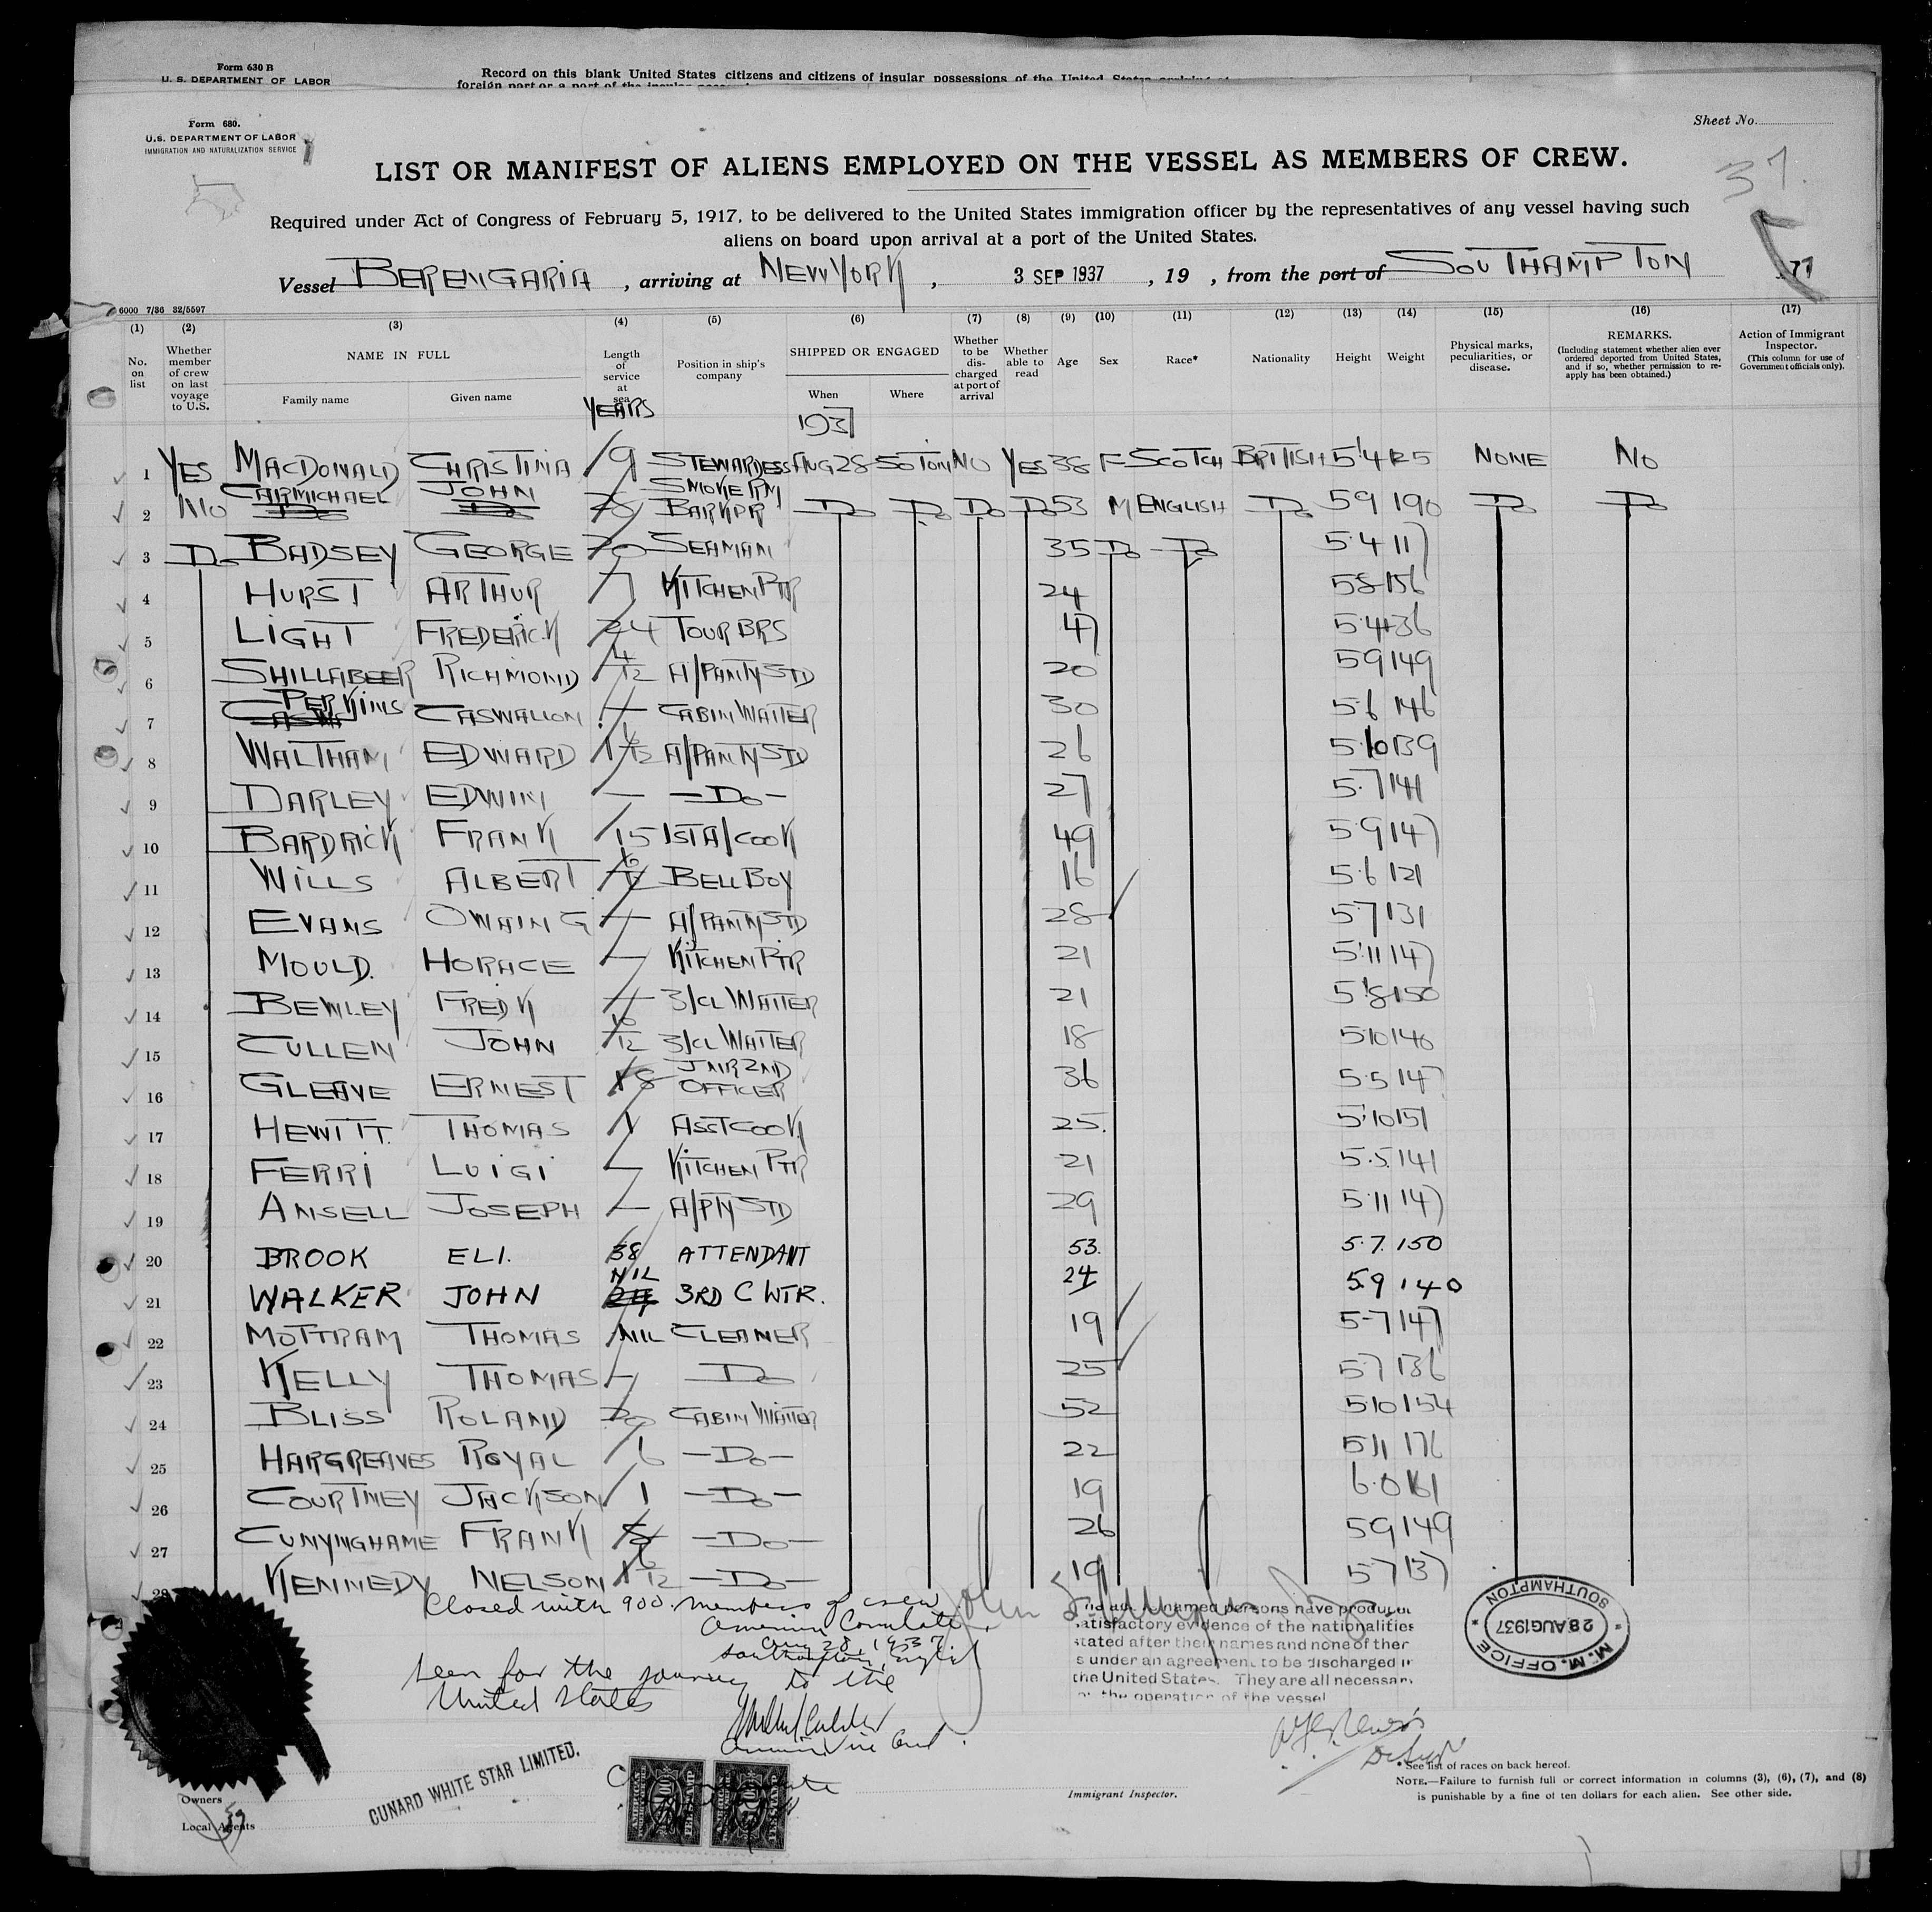 Form 630 B
U. S. DEPARTMENT OF LABOR
Record on this blank United States citizens and citizens of insular possessions of the United States
foreign port or a port of the
Form 680.
U.S. DEPARTMENT OF LABOR
IMMIGRATION AND NATURALIZATION SERVICE
Sheet No.
37.
LIST OR MANIFEST OF ALIENS EMPLOYED ON THE VESSEL AS MEMBERS OF CREW.
Required under Act of Congress of February 5, 1917, to be delivered to the United States immigration officer by the representatives of any vessel having such
aliens on board upon arrival at a port of the United States.
Vessel BERENGARIA, arriving at NEW YORK, 3 SEP 1937, 19 , from the port of SOUTHAMPTON
6000 7/36 32/5597
(1) (2) (3) (4) (5) (6) (7) (8) (9) (10) (11) (12) (13) (14) (15) (16) (17)
No. on list
Whether member of crew on last voyage to U.S.
NAME IN FULL
Family name Given name
Length of service at sea
YEARS
Position in ship's company
SHIPPED OR ENGAGED
When Where
1937
Whether to be discharged at port of arrival
Whether able to read
Age
Sex
Race*
Nationality
Height
Weight
Physical marks, peculiarities, or disease.
REMARKS.
(Including statement whether alien ever ordered deported from United States, and if so, whether permission to reapply has been obtained.)
Action of Immigrant Inspector.
(This column for use of Government officials only).
1 YES MACDONALD CHRISTINA 9 STEWARDESS AUG 28 SOTON NO YES 38 F SCOTCH BRITISH 5'4 125 NONE NO
2 NO CARMICHAEL JOHN SMOKE RM BARKPR Do Do Do Do 53 M ENGLISH Do 5 9 190 Do Do
3 Do BADSEY GEORGE 20 SEAMAN 35 Do Do 5.4 117
4 HURST ARTHUR 7 KITCHEN PTR 24 5 8 156
5 LIGHT FREDERICK 24 TOUR BRS 47 5.4 136
6 SHILLABEER RICHMOND 4/12 A/PANTY STD 20 5 9 149
7 PERKINS CASWALLON — CABIN WAITER 30 5.6 146
8 WALTHAM EDWARD A/PANTY STD 26 5.10 139
9 DARLEY EDWIN — Do — 27 5.7 141
10 BARDRICK FRANK 15 1ST A/COOK 49 5.9 147
11 WILLS ALBERT BELL BOY 16 5.6 121
12 EVANS OWAIN G — A/PANTY STD 28 5.7 131
13 MOULD. HORACE — KITCHEN PTR 21 5'11 147
14 BEWLEY FREDK — 3/CL WAITER 21 5'8 150
15 CULLEN JOHN 10/12 3/CL WAITER 18 5.10 140
16 GLEAVE ERNEST 18 JNR 2ND OFFICER 36 5.5 147
17 HEWITT. THOMAS 1 ASST COOK 25. 5'10 151
18 FERRI LUIGI — KITCHEN PTR 21 5.5. 141
19 ANSELL JOSEPH — A/PTY STD 29 5.11 147
20 BROOK ELI. 38 ATTENDANT 53. 5.7. 150
21 WALKER JOHN NIL 3RD C WTR. 24 5.9 140
22 MOTTRAM THOMAS NIL CLEANER 19 5-7 147
23 KELLY THOMAS — Do 25 5.7 136
24 BLISS ROLAND 20 CABIN WAITER 52 5.10 154
25 HARGREAVES ROYAL 6 — Do — 22 5.11 176
26 COURTNEY JACKSON 1 — Do — 19 6.0 161
27 CUNYNGHAME FRANK — Do — 26 5 9 149
28 KENNEDY NELSON — Do — 19 5 7 137
Closed with 900. members of crew
American Consulate,
Aug 28, 1937.
Southampton, England
Seen for the journey to the
United States
The above named persons have produced
satisfactory evidence of the nationalities
stated after their names and none of them
is under an agreement to be discharged in
the United States. They are all necessary
for the operation of the vessel
M.M. OFFICE
28 AUG 1937
SOUTHAMPTON
Owners
CUNARD WHITE STAR LIMITED.
Local Agents
Immigrant Inspector.
* See list of races on back hereof.
NOTE.—Failure to furnish full or correct information in columns (3), (6), (7), and (8)
is punishable by a fine of ten dollars for each alien. See other side.